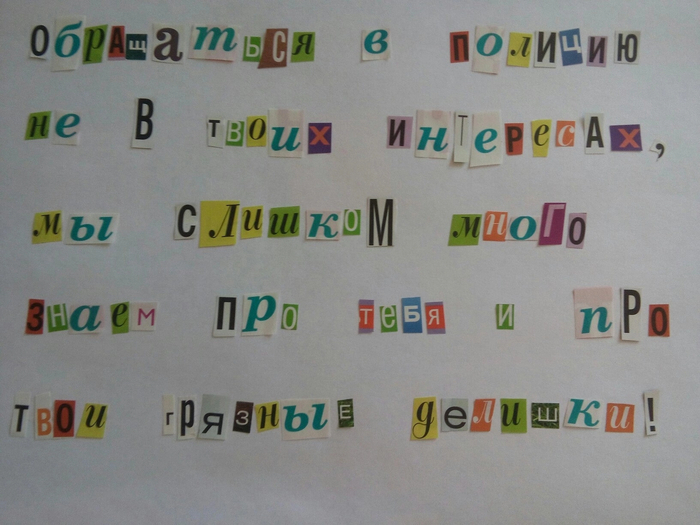 Обращаться в полицию
не в твоих интересах,
мы слишком много
знаем про тебя и про
твои грязные делишки!